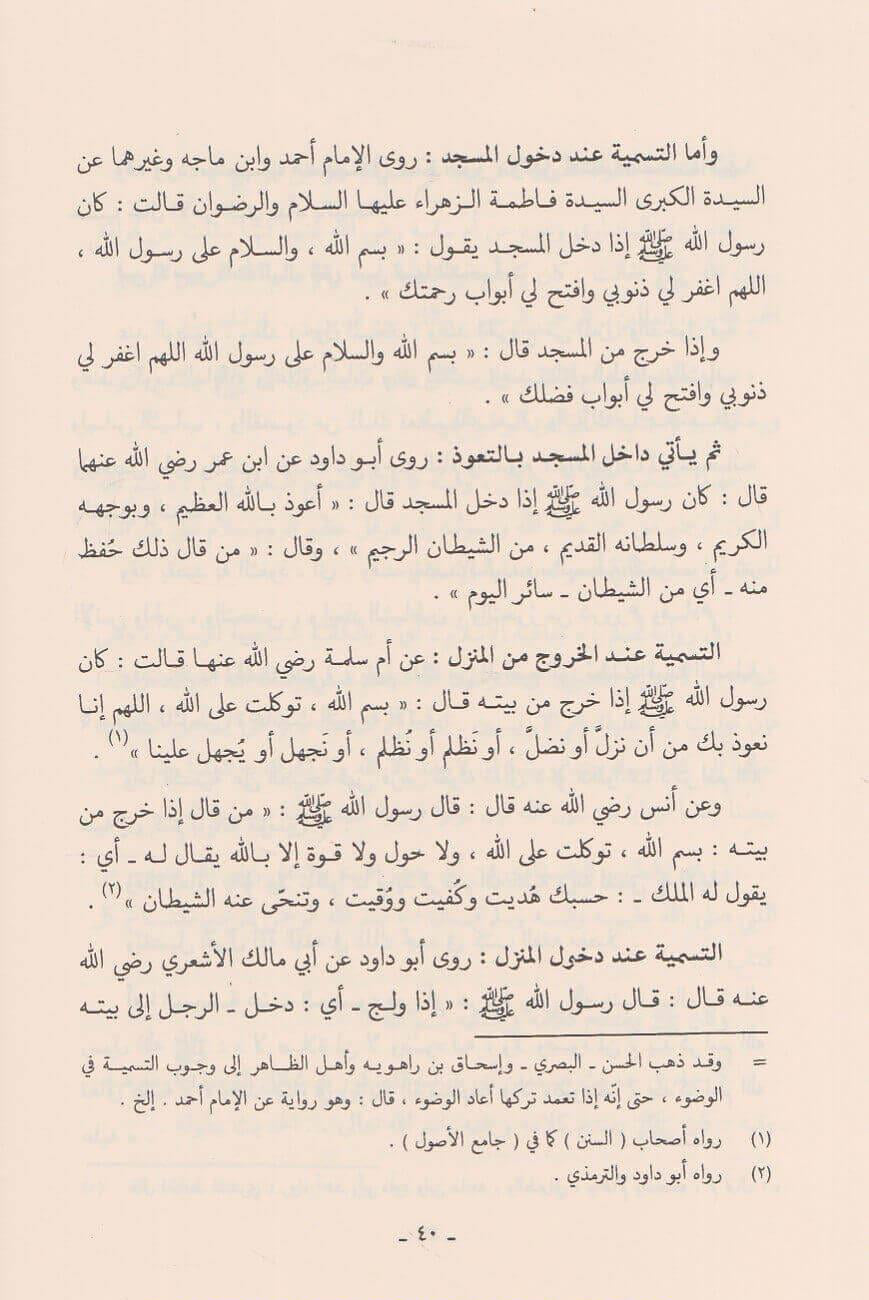 وأما التسمية عند دخول المسجد : روى الإمام أحمد وابن ماجه وغيرهما عن
السيدة الكبرى السيدة فاطمة الزهراء عليها السلام والرضوان قالت : كان
رسول الله ﷺ إذا دخل المسجد يقول : « بسم الله ، والسلام على رسول الله ،
اللهم اغفر لي ذنوبي وافتح لي أبواب رحمتك » .
وإذا خرج من المسجد قال : « بسم الله والسلام على رسول الله اللهم اغفر لي
ذنوبي وافتح لي أبواب فضلك » .
ثم يأتي داخل المسجد بالتعوذ : روى أبو داود عن ابن عمر رضي الله عنهما
قال : كان رسول الله ﷺ إذا دخل المسجد قال : « أعوذ بالله العظيم ، وبوجهه
الكريم ، وسلطانه القديم ، من الشيطان الرجيم » ، وقال : « من قال ذلك حُفظ
منه ـ أي من الشيطان ـ سائر اليوم » .
التسمية عند الخروج من المنزل : عن أم سلمة رضي الله عنها قالت : كان
رسول الله ﷺ إذا خرج من بيته قال : « بسم الله ، توكلت على الله ، اللهم إنا
نعوذ بك من أن نزلَّ أو نضلَّ ، أو نَظلم أو نُظلم ، أو نَجهل أو يُجهل علينا »(١) .
وعن أنس رضي الله عنه قال : قال رسول الله ﷺ : « من قال إذا خرج من
بيته : بسم الله ، توكلت على الله ، ولا حول ولا قوة إلا بالله يقال له ـ أي :
يقول له الملك ـ : حسبك هُديت وكُفيت ووُقيت ، وتنحّى عنه الشيطان »(٢) .
التسمية عند دخول المنزل : روى أبو داود عن أبي مالك الأشعري رضي الله
عنه قال : قال رسول الله ﷺ : « إذا ولج ـ أي : دخل ـ الرجل إلى بيته
= وقد ذهب الحسن ـ البصري ـ وإسحاق بن راهويه وأهل الظاهر إلى وجوب التسمية في
الوضوء ، حتى إنّه إذا تعمد تركها أعاد الوضوء ، قال : وهو رواية عن الإمام أحمد . إلخ .
(١) رواه أصحاب ( السنن ) كما في ( جامع الأصول ) .
(٢) رواه أبو داود والترمذي .
ـ ٤٠ ـ